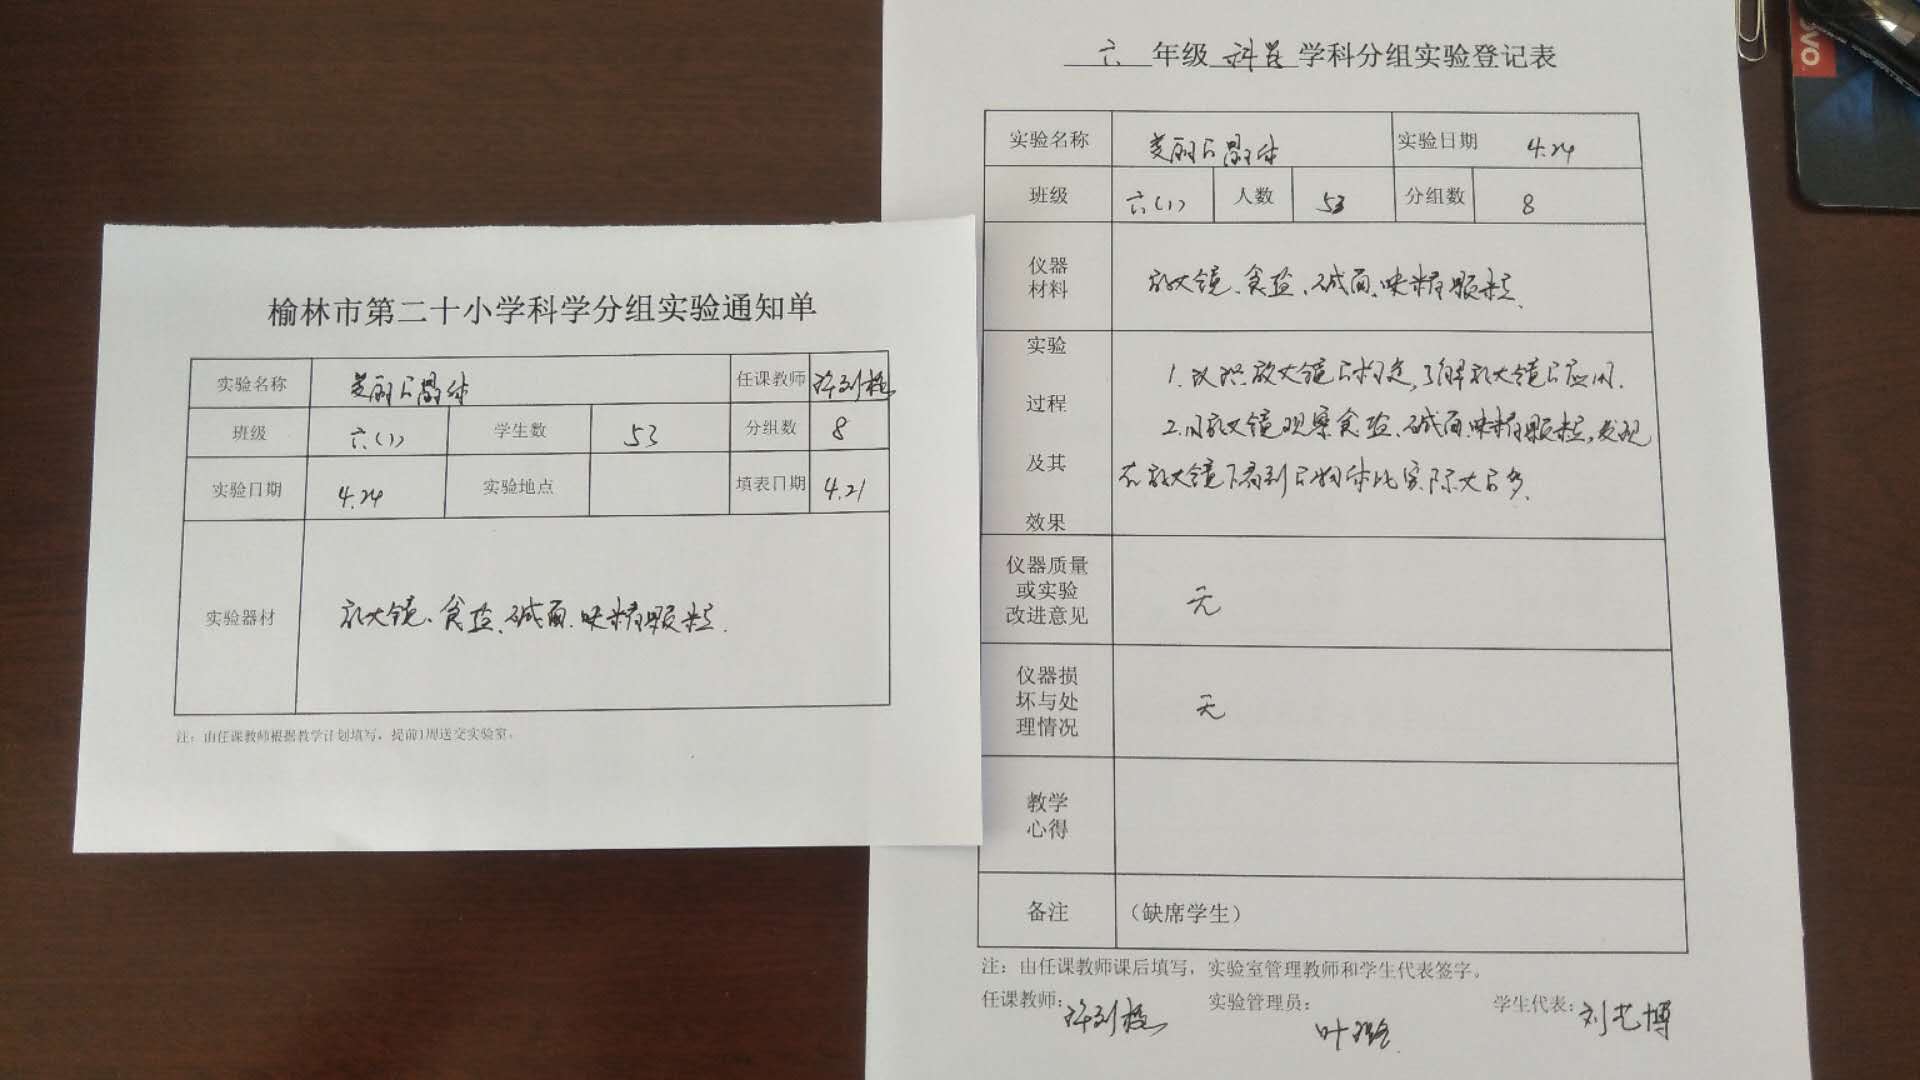 榆林市第二十小学科学分组实验通知单
实验名称 美丽的晶体 任课教师
班级 六(1) 学生数 53 分组数 8
实验日期 4.24 实验地点 填表日期 4.21
实验器材 放大镜、食盐、碱面、味精颗粒.
注：由任课教师根据教学计划填写，提前1周送交实验室。
六 年级 科学 学科分组实验登记表
实验名称 美丽的晶体 实验日期 4.24
班级 六(1) 人数 53 分组数 8
仪器
材料
放大镜、食盐、碱面、味精颗粒.
实验
过程
及其
效果
1.认识放大镜的构造,了解放大镜的应用.
2.用放大镜观察食盐、碱面、味精颗粒,发现
在放大镜下看到的物体比实际大的多.
仪器质量
或实验
改进意见
无
仪器损
坏与处
理情况
无
教学
心得
备注 （缺席学生）
注：由任课教师课后填写，实验室管理教师和学生代表签字。
任课教师: 实验管理员: 叶 学生代表: 刘艺博
vo